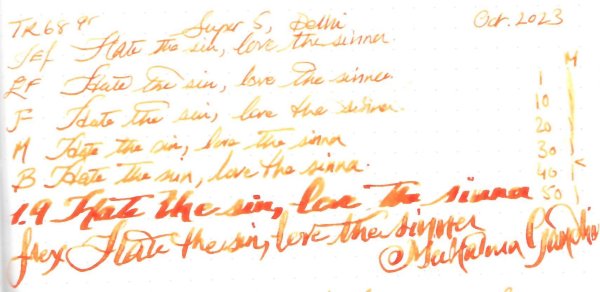 TR 68 gr Super 5, Delhi Oct. 2023
EF Hate the sin, love the sinner
EF Hate the sin, love the sinner
F Hate the sin, love the sinner.
M Hate the sin, love the sinna
B Hate the sin, love the sinna.
1.9 Hate the sin, love the sinna
flex Hate the sin, love the sinner
Mahatma Gandhi
M
1
10
20
30
40
50